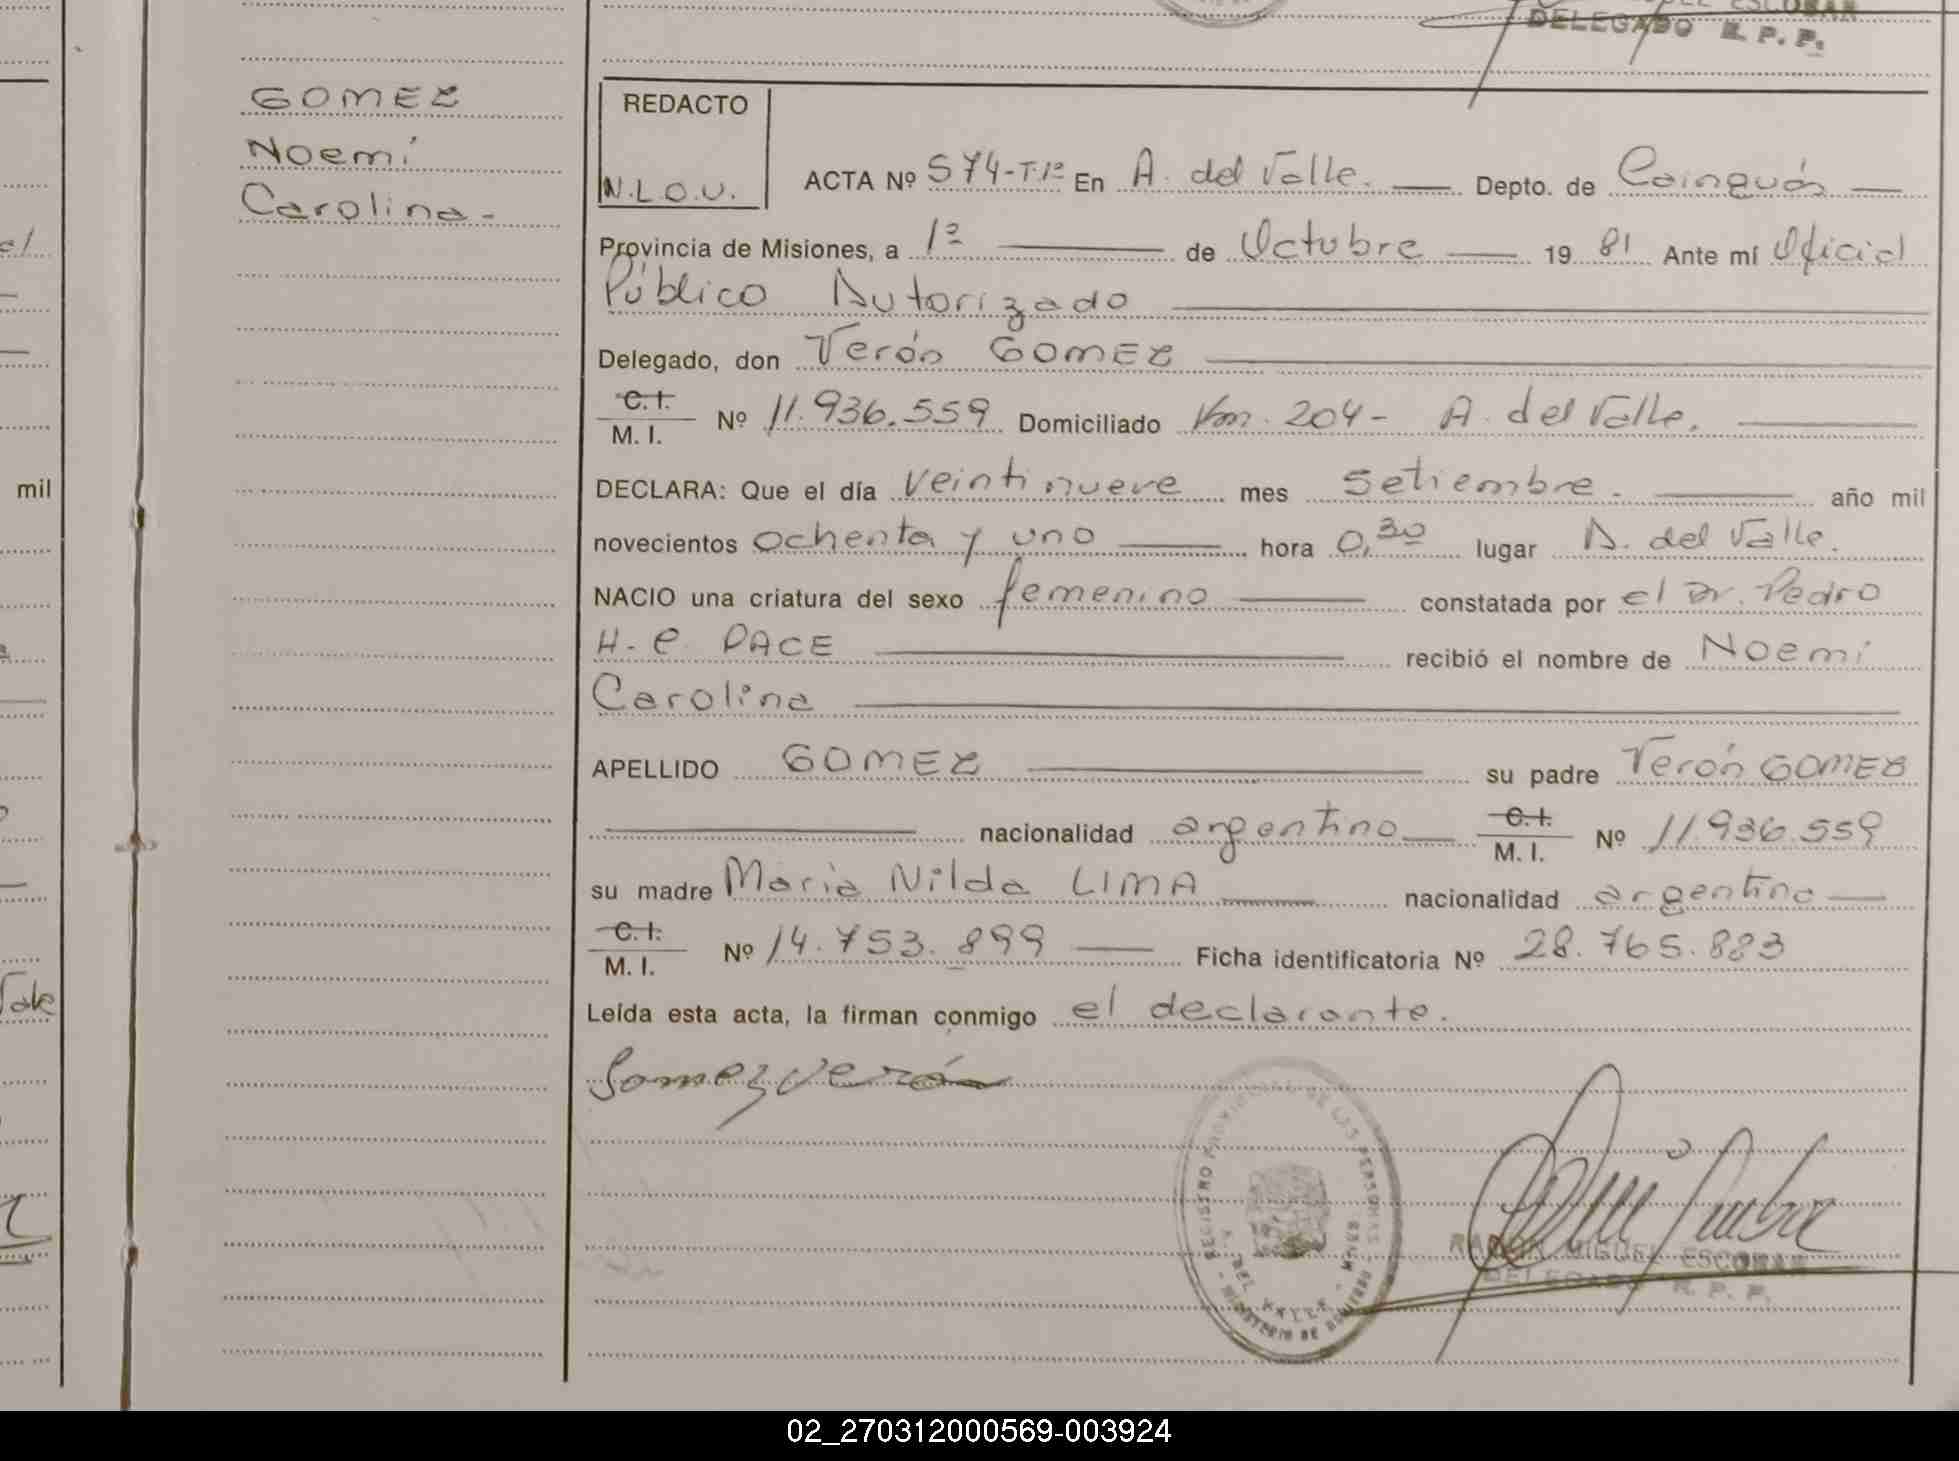 DELEGADO R. P. P.
GOMEZ
Noemí
Carolina-
REDACTO
N.L.O.U.
ACTA Nº 574-T.1º En A. del Valle. Depto. de Cainguás
Provincia de Misiones, a 1º de Octubre 19 81 Ante mí Oficial
Público Autorizado
Delegado, don Verón GOMEZ
C.I.
M. I. Nº 11.936.559 Domiciliado Km. 204- A. del Valle.
DECLARA: Que el día veintinueve mes setiembre. año mil
novecientos ochenta y uno hora 0,30 lugar A. del Valle.
NACIO una criatura del sexo femenino constatada por el Dr. Pedro
H. C. PACE recibió el nombre de Noemí
Carolina
APELLIDO GOMEZ su padre Verón GOMEZ
nacionalidad argentino C.I.
M. I. Nº 11.936.559
su madre Maria Nilda LIMA nacionalidad argentina
C.I.
M. I. Nº 14.753.899 Ficha identificatoria Nº 28.765.883
Leída esta acta, la firman conmigo el declarante.
Gomez Verón
REGISTRO PROVINCIAL DE LAS PERSONAS
MINISTERIO DE GOBIERNO
DEL VALLE
RAMON MIGUEL ESCOBAR
DELEGADO R. P. P.
mil
02_270312000569-003924